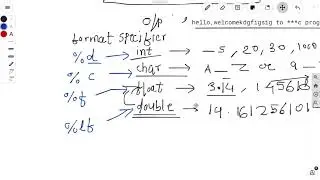 o/p
hello,welcomekdgfigsig to ***c prog
format specifier
%d → int → -5, 20, 30, 1000
%c → char → A_Z or a_
%f → float → 3.14, 145618
%lf → double → 14.161256101